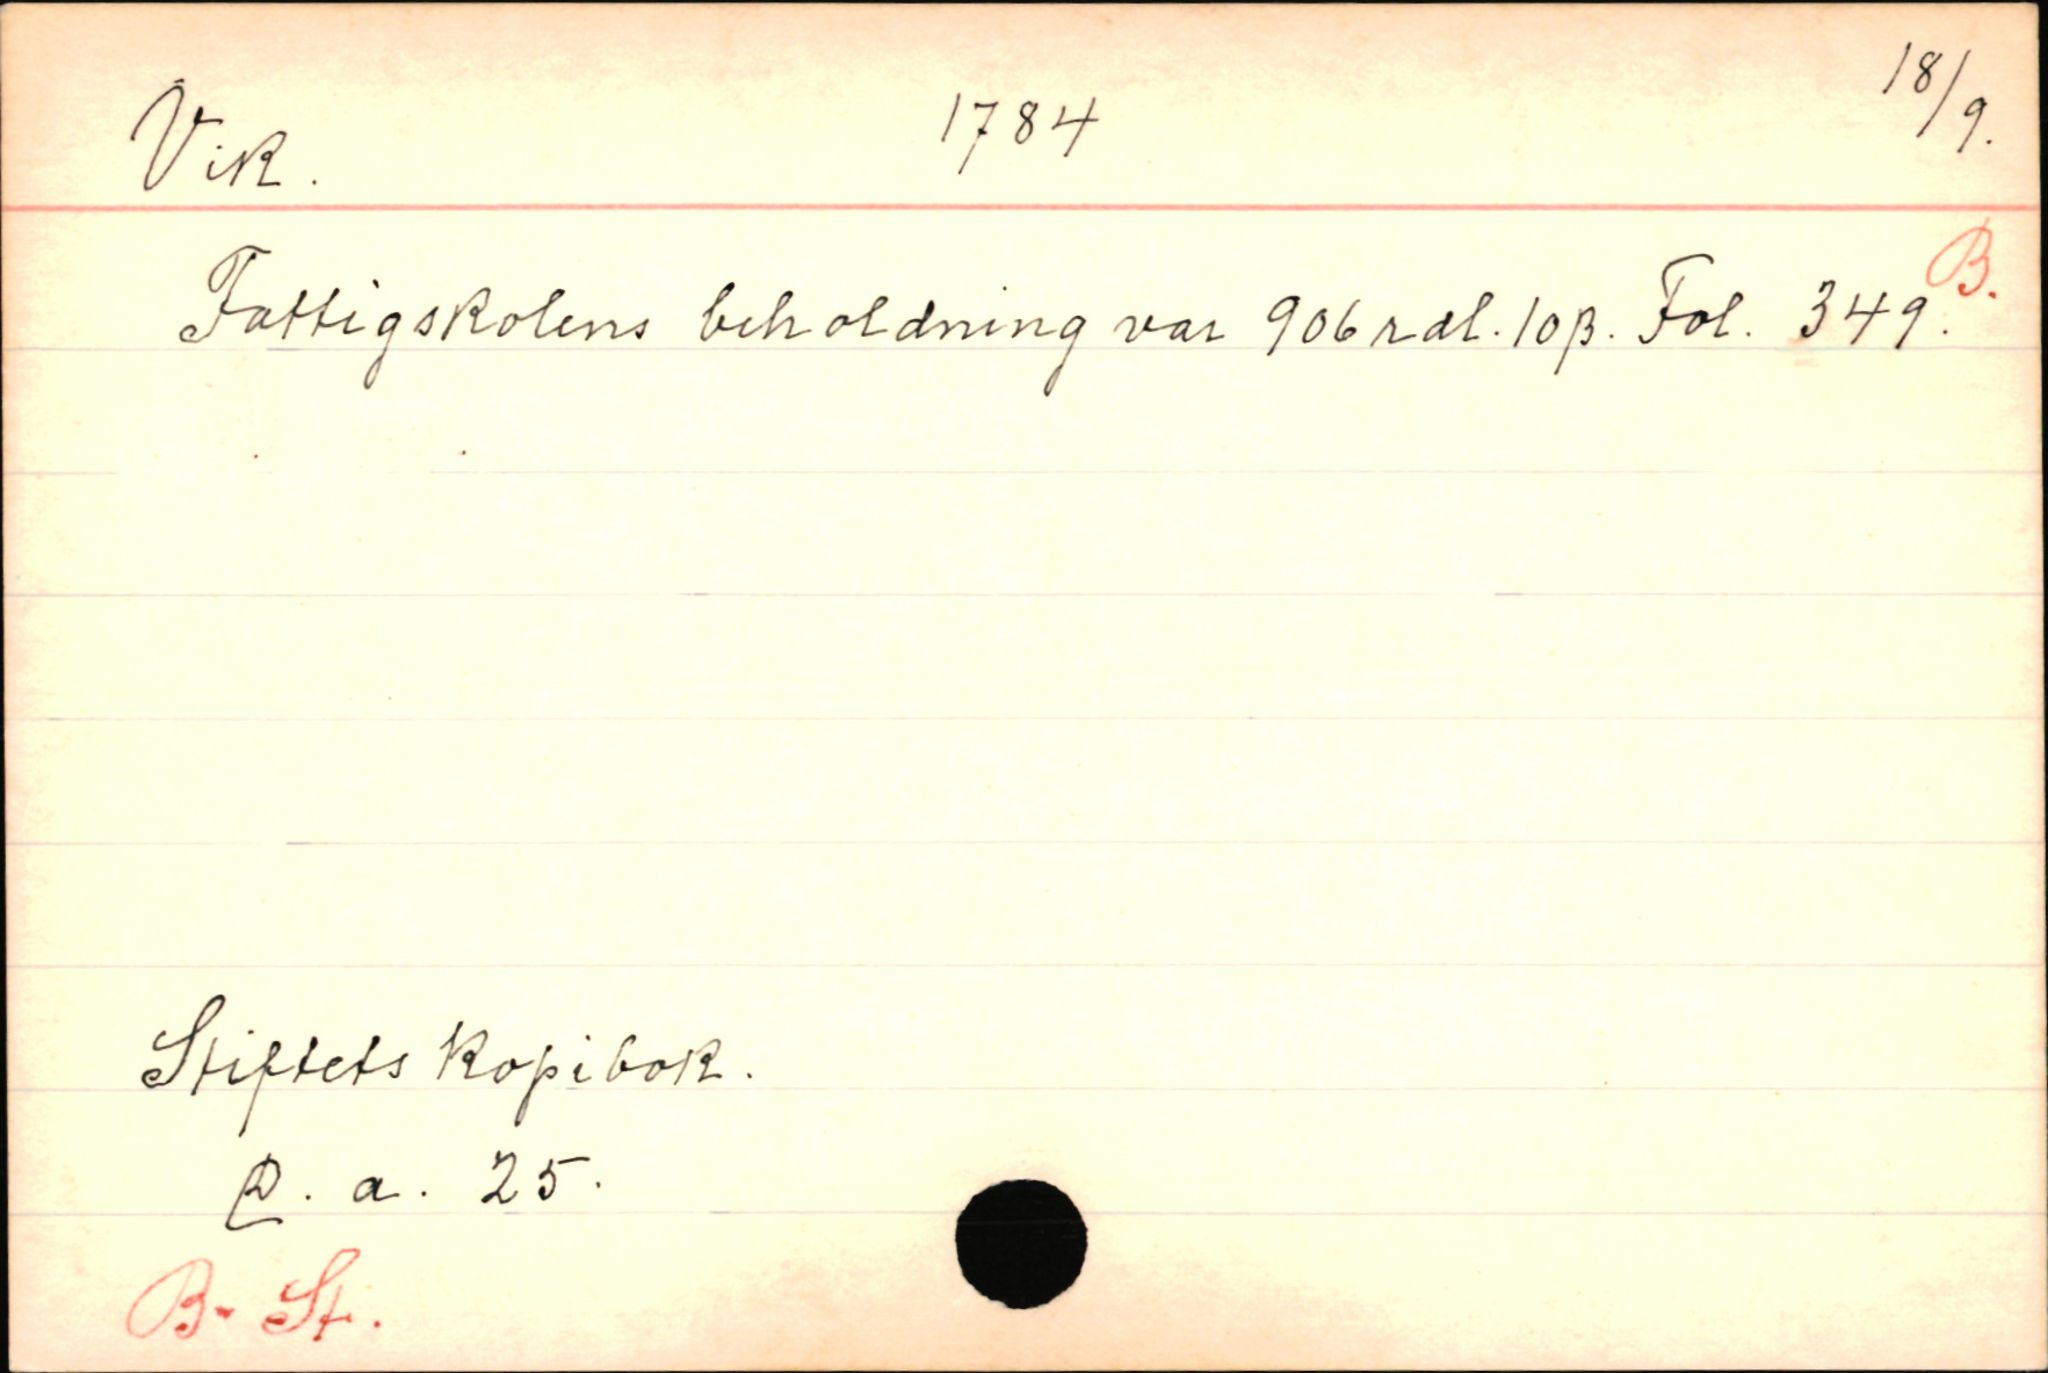 Vik. 1784 18/9.
B.
Fattigskolens beholdning var 906 rdl. 10 β. Fol. 349.
Stiftets Kopibok.
a. 25.
B. St.